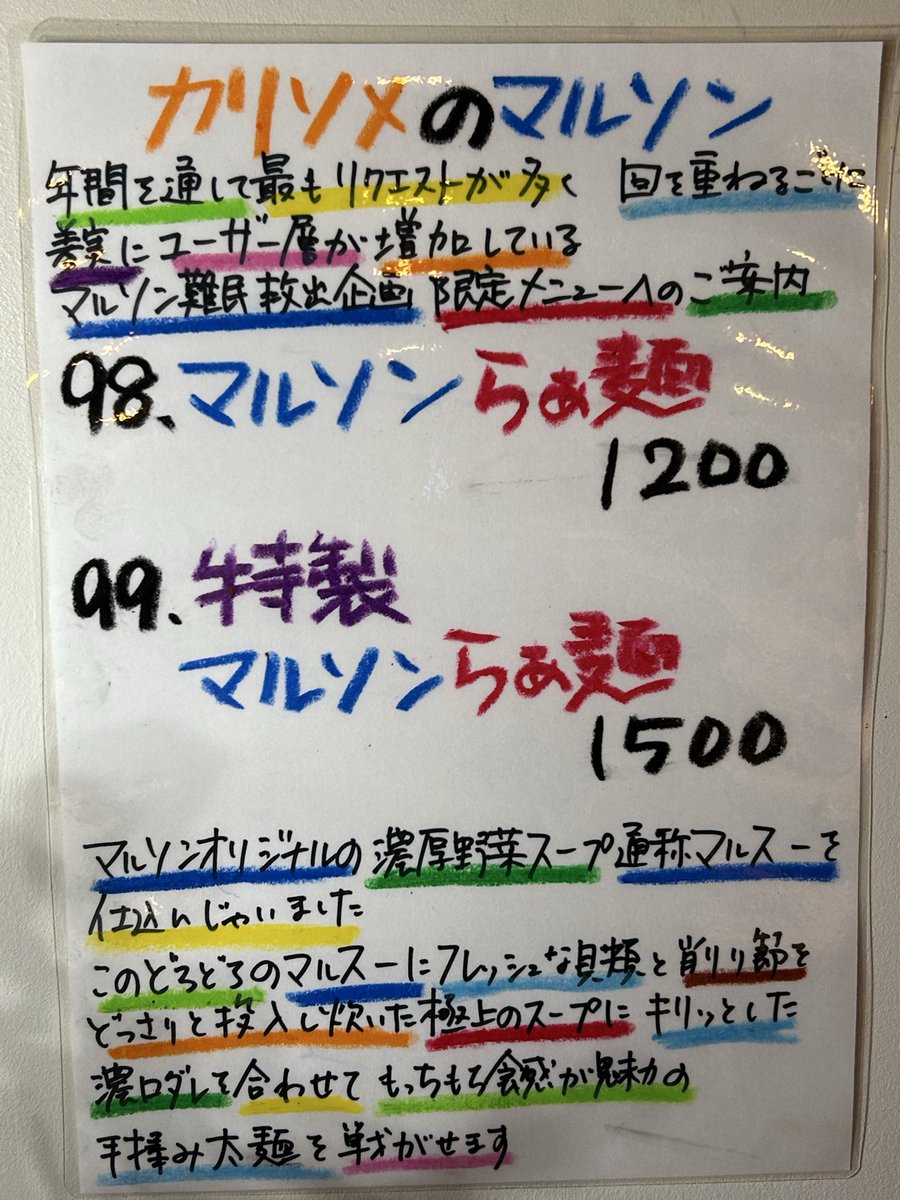 カリソメのマルソン
年間を通して最もリクエストが多く 回を重ねるごとに
着実にユーザー層が増加している
マルソン難民救出企画 限定メニューへのご案内
98.マルソンらぁ麺
1200
99.特製
マルソンらぁ麺
1500
マルソンオリジナルの濃厚野菜スープ通称マルスーを
仕込んじゃいました
このどろどろのマルスーにフレッシュな貝類と削り節を
どっさりと投入し炊いた極上のスープに キリッとした
濃口ダレを合わせて もっちもち食感が魅力の
手揉み太麺を戦がせます